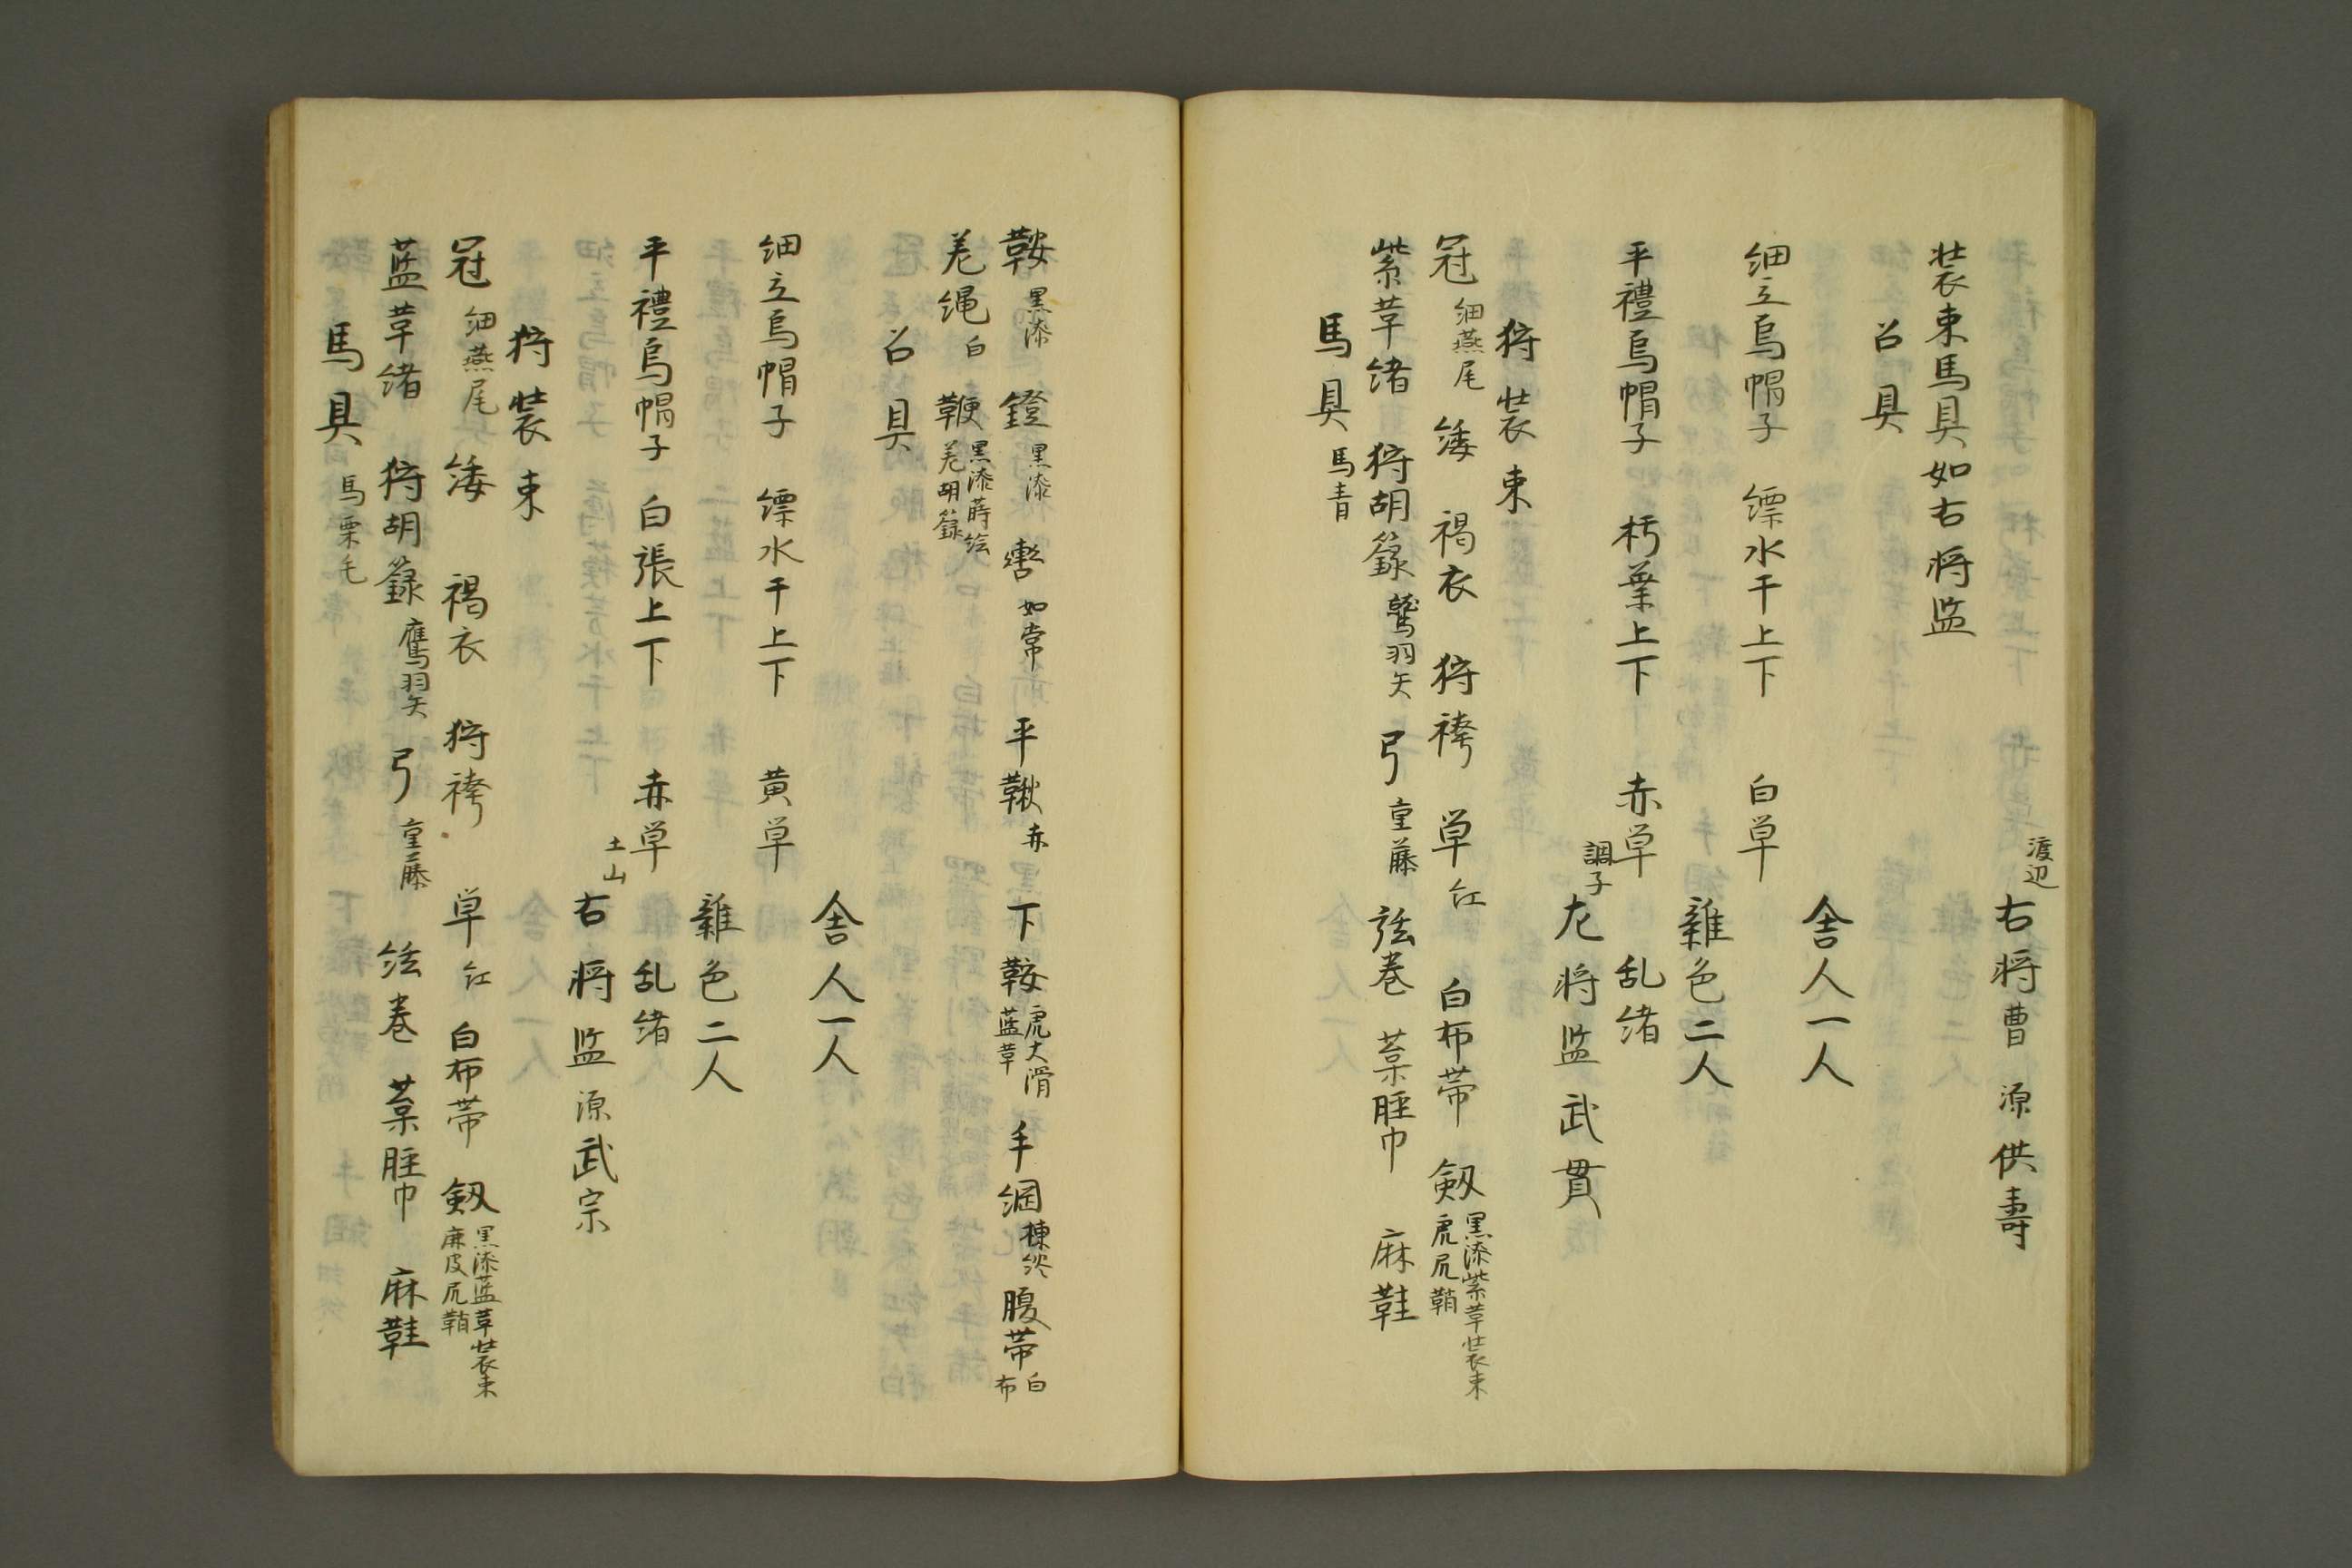 渡辺
右将曹 源供寿
装束馬具如右将监
召具
舎人一人
細立烏帽子 縹水干上下 白単
雑色二人
平禮烏帽子 朽葉上下 赤単 乱緒
調子
左将监武貫
狩装束
冠 細燕尾 緌 褐衣 狩袴 単 红 白布帯 剱 黒漆紫革装束 虎尻鞘
紫革緒 狩胡籙 鷲羽矢 弓 重藤 弦巻 葈脛巾 麻鞋
馬具 馬青
鞍 黒漆 鐙 黒漆 轡 如常 平鞦 赤 下鞍 虎大滑 蓝革 手綱 楝欻 腹帯 白布
差縄 白 鞭 黒漆蒔绘 差胡籙
召具
舎人一人
細立烏帽子 縹水干上下 黄単
雑色二人
平禮烏帽子 白張上下 赤単 乱緒
土山
右将监源武宗
狩装束
冠 細燕尾 緌 褐衣 狩袴 単 红 白布帯 剱 黒漆蓝革装束 鹿皮尻鞘
蓝革緒 狩胡籙 鷹羽矢 弓 重藤 弦巻 葈脛巾 麻鞋
馬具 馬栗毛